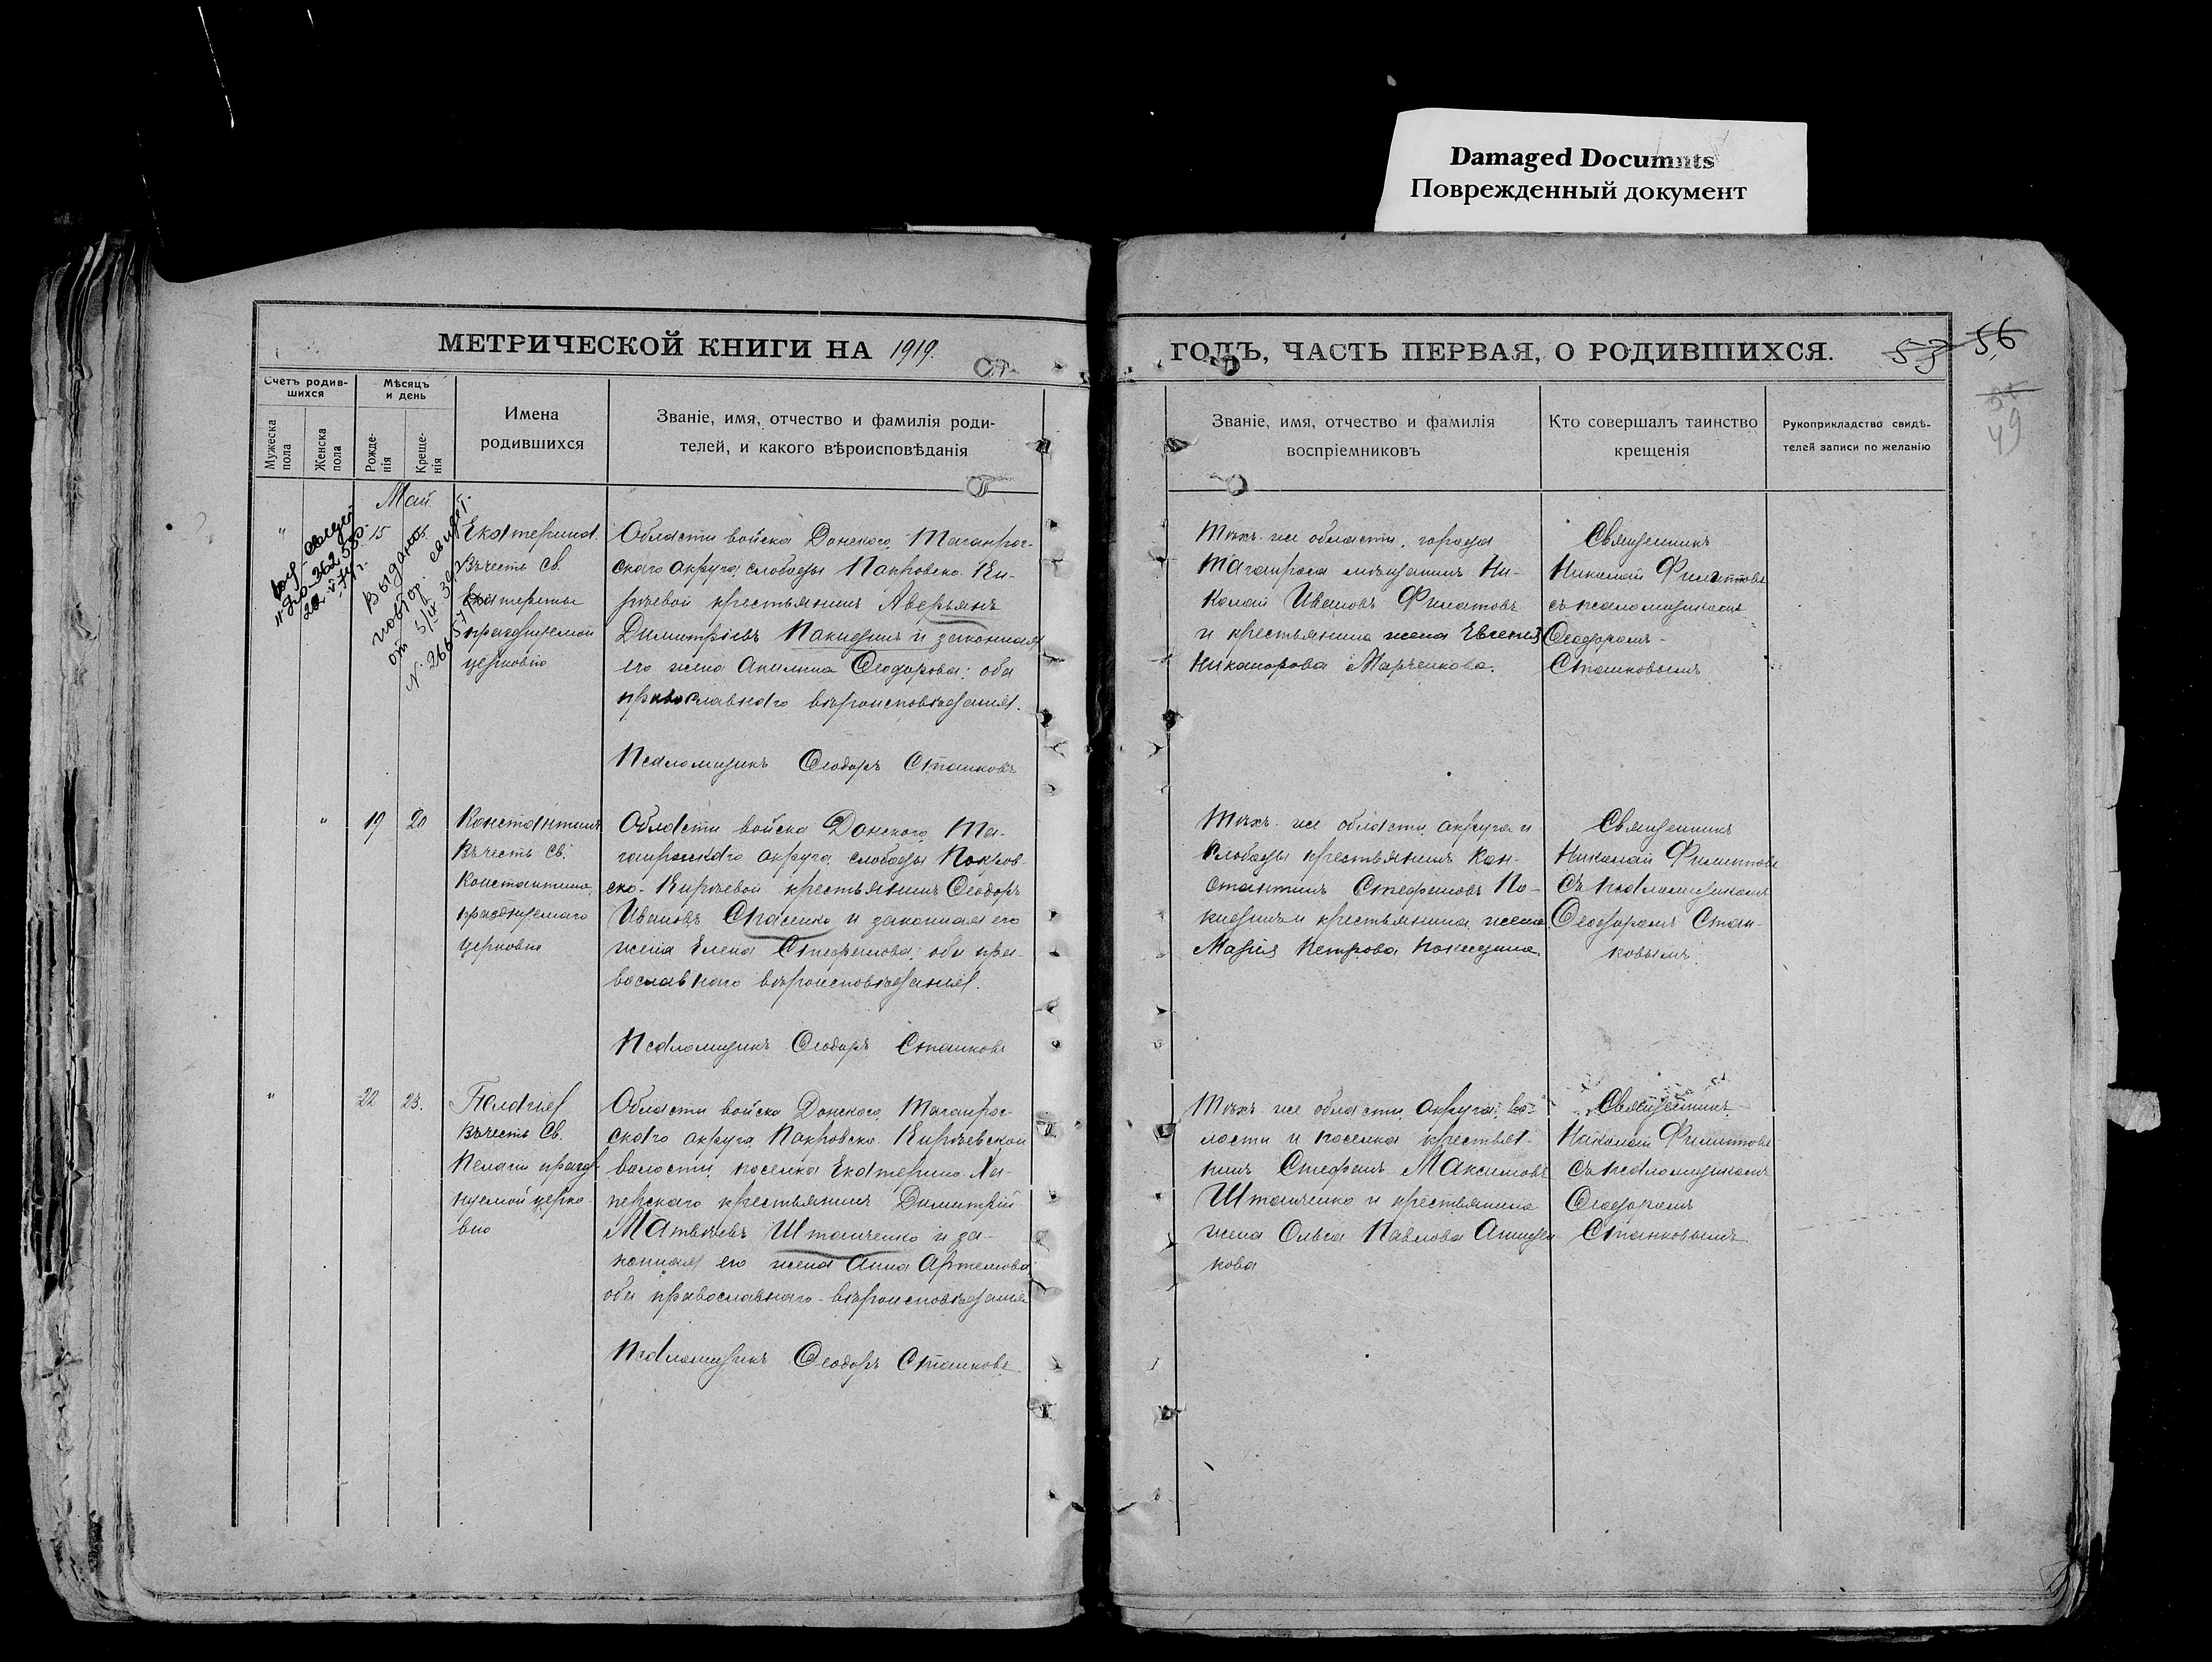 Damaged Documnts
Поврежденный документ
МЕТРИЧЕСКОЙ КНИГИ НА 1919.
ГОДЪ, ЧАСТЬ ПЕРВАЯ, О РОДИВШИХСЯ.
53 56
49
Счетъ родив-
шихся
Мѣсяцъ
и день
Мужеска
пола
Женска
пола
Рожде-
нія
Креще-
нія
Имена
родившихся
Званіе, имя, отчество и фамилія роди-
телей, и какого вѣроисповѣданія
Званіе, имя, отчество и фамилія
воспріемниковъ
Кто совершалъ таинство
крещенія
Рукоприкладство свидѣ-
телей записи по желанію
Май
15
Выдано
повтор. свидет.
Екатерина.
Въ честь Св.
Екатерины
празднуемой
церковію
Области войска Донского, Таганрог-
скаго округа, слободы Покровско-Ки-
рѣевой крестьянинъ Аверьянъ
Димитріевъ Пакидинъ и законная
его жена Акилина Ѳеодорова; оба
православнаго вѣроисповѣданія.
Псаломщикъ Ѳеодоръ Станковъ
Тѣхъ-же области, города
Таганрога мѣщанинъ Ни-
колай Ивановъ Филатовъ
и крестьянина жена Евгенія
Никанорова Марченкова.
Священникъ
Николай Филиппов
съ псаломщикомъ
Ѳеодоромъ
Станковымъ
" 19 20
Константинъ
Въ честь Св.
Константина,
празднуемаго
церковію
Области войска Донского, Та-
ганрогскаго округа, слободы Покров-
ско-Кирѣевой крестьянинъ Ѳеодоръ
Ивановъ Спаленко и законная его
жена Елена Стефанова; оба пра-
вославнаго вѣроисповѣданія.
Псаломщикъ Ѳеодоръ Станковъ
Тѣхъ-же области, округа и
слободы крестьянинъ Кон-
стантинъ Стефановъ По-
кидинъ и крестьянина жена
Марія Петрова Покидина.
Священникъ
Николай Филиппов
съ псаломщикомъ
Ѳеодоромъ Стан-
ковымъ.
" 22 23.
Пелагія
Въ честь Св.
Пелагіи празд-
нуемой церко-
вію
Области войска Донского, Таганрог-
скаго округа Покровско-Кирѣевской
волости, поселка Екатерино-Ха-
перскаго крестьянинъ Димитрій
Матвѣевъ Штанченко и за-
конная его жена Анна Артемова
оба православнаго вѣроисповѣданія
Псаломщикъ Ѳеодоръ Станковъ
Тѣхъ-же области, округа, во-
лости и поселка крестья-
нинъ Стефанъ Максимовъ
Штанченко и крестьянина
жена Ольга Павлова
кова
Священникъ
Николай Филиппов
съ псаломщикомъ
Ѳеодоромъ
Станковымъ